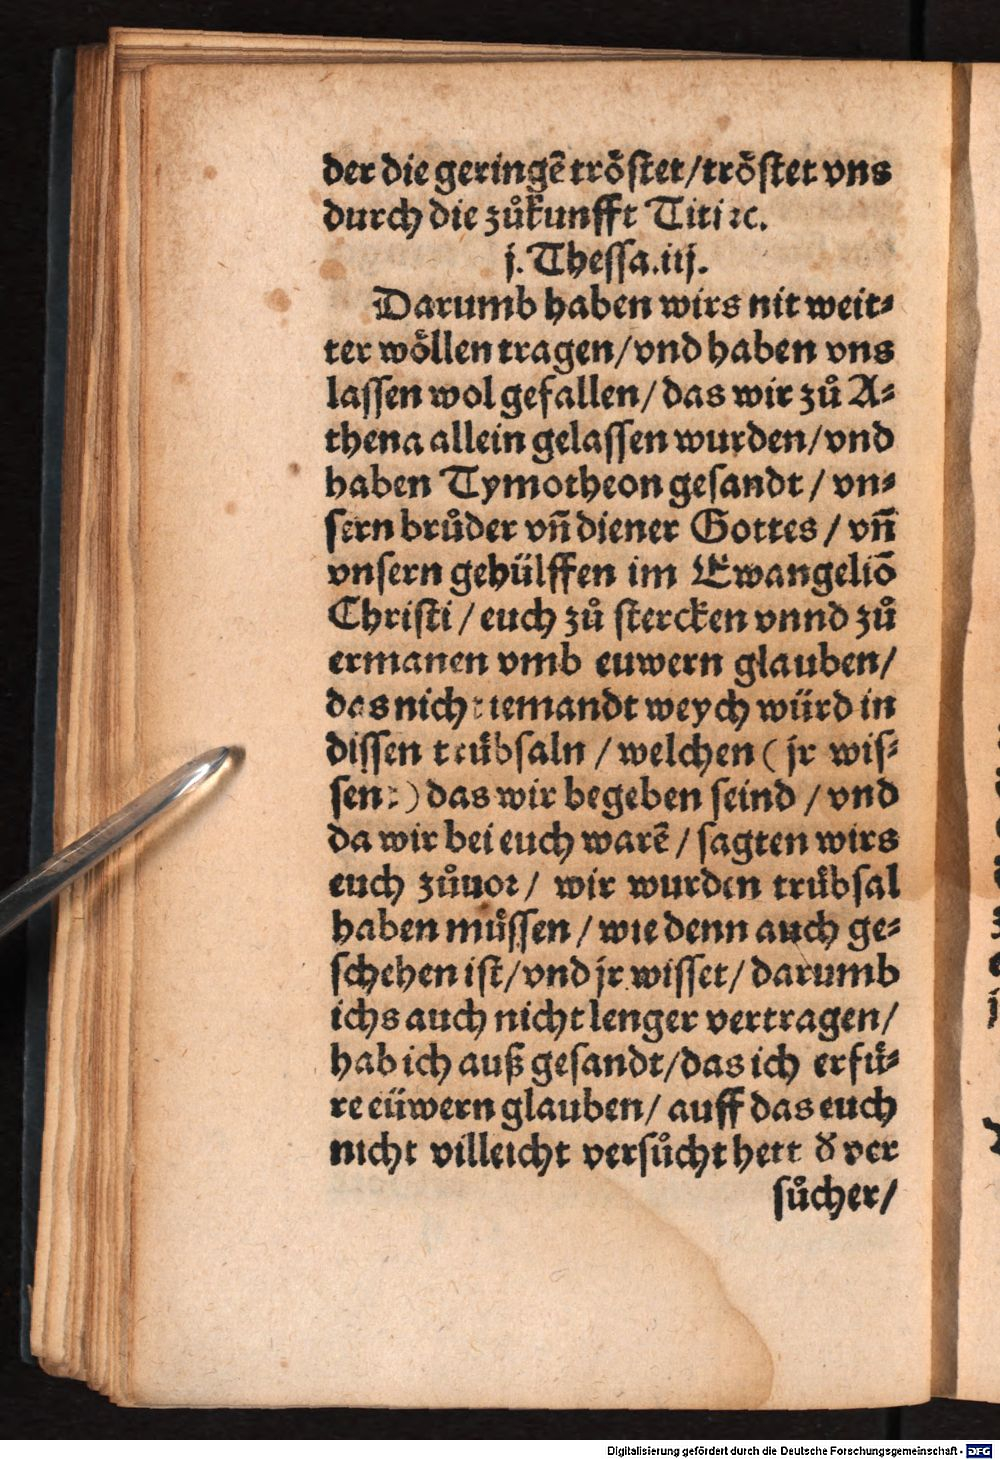 der die geringē troͤſtet/troͤſtet vns
durch die zuͦkunfft Titi ꝛc.
j. Theſſa.iij.
Darumb haben wirs nit weit⸗
ter woͤllen tragen/vnd haben vns
laſſen wol gefallen/ das wir zuͦ A⸗
thena allein gelaſſen wurden/vnd
haben Tymotheon geſandt / vn⸗
ſern bruͦder vñ diener Gottes / vñ
vnſern gehülffen im Ewangeliō
Chriſti / euch zuͦ ſtercken vnnd zuͦ
ermanen vmb euwern glauben/
das nicht iemandt weych würd in
diſſen truͤbſaln / welchen ( jr wiſ⸗
ſen:) das wir begeben ſeind / vnd
da wir bei euch warē / ſagten wirs
euch zuͦuoꝛ/ wir wurden truͤbſal
haben muͤſſen / wie denn auch ge⸗
ſchehen iſt/vnd jr wiſſet/ darumb
ichs auch nicht lenger vertragen/
hab ich auß geſandt/das ich erfuͤ⸗
re eüwern glauben/ auff das euch
nicht villeicht verſuͦcht hett d̕ ver
ſuͦcher/
Digitalisierung gefördert durch die Deutsche Forschungsgemeinschaft - DFG